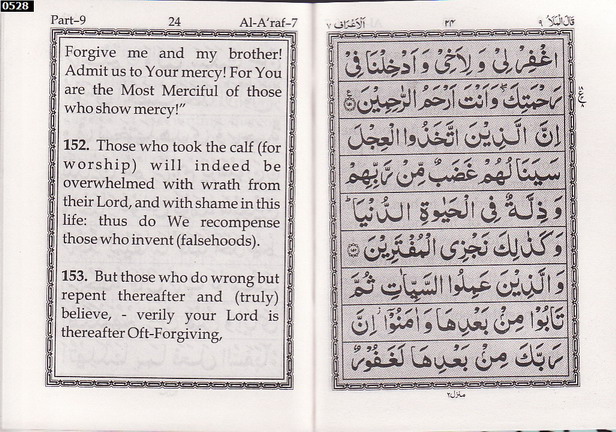 0528
Part-9 24 Al-A'raf-7
Forgive me and my brother!
Admit us to Your mercy! For You
are the Most Merciful of those
who show mercy!"
152. Those who took the calf (for
worship) will indeed be
overwhelmed with wrath from
their Lord, and with shame in this
life: thus do We recompense
those who invent (falsehoods).
153. But those who do wrong but
repent thereafter and (truly)
believe, - verily your Lord is
thereafter Oft-Forgiving,
قَالَ الْمَلَأُ ٩ ٢٤ اَلْاَعْرَاف ٧
اغْفِرْ لِىْ وَ لِاَخِىْ وَ اَدْخِلْنَا فِىْ
رَحْمَتِكَ ۖ وَ اَنْتَ اَرْحَمُ الرّٰحِمِيْنَ
اِنَّ الَّذِيْنَ اتَّخَذُوا الْعِجْلَ
سَيَنَالُهُمْ غَضَبٌ مِّنْ رَّبِّهِمْ
وَ ذِلَّةٌ فِى الْحَيٰوةِ الدُّنْيَا ؕ
وَ كَذٰلِكَ نَجْزِى الْمُفْتَرِيْنَ
وَ الَّذِيْنَ عَمِلُوا السَّيِّاٰتِ ثُمَّ
تَابُوْا مِنْۢ بَعْدِهَا وَ اٰمَنُوْۤا اِنَّ
رَبَّكَ مِنْۢ بَعْدِهَا لَغَفُوْرٌ
منزل ٢